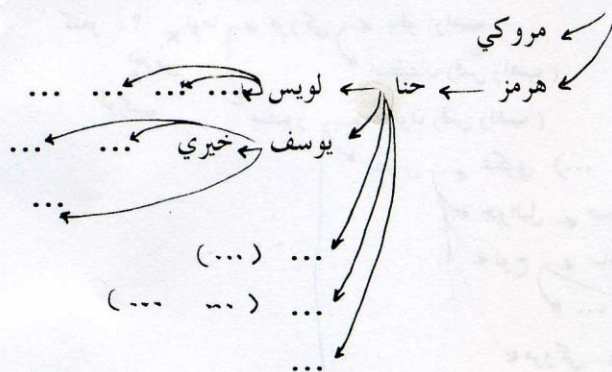 مروكي
هرمز ← حنا ← لويس ... ... ... ...
يوسف ← خيري ... ...
...
... (...)
... (... ...)
...